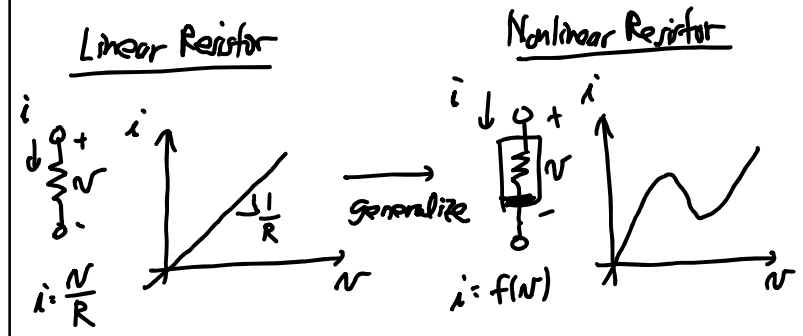 Linear Resistor
i
+
v
-
i = v/R
i
1/R
v
generalize
Nonlinear Resistor
i
+
v
-
i = f(v)
i
v